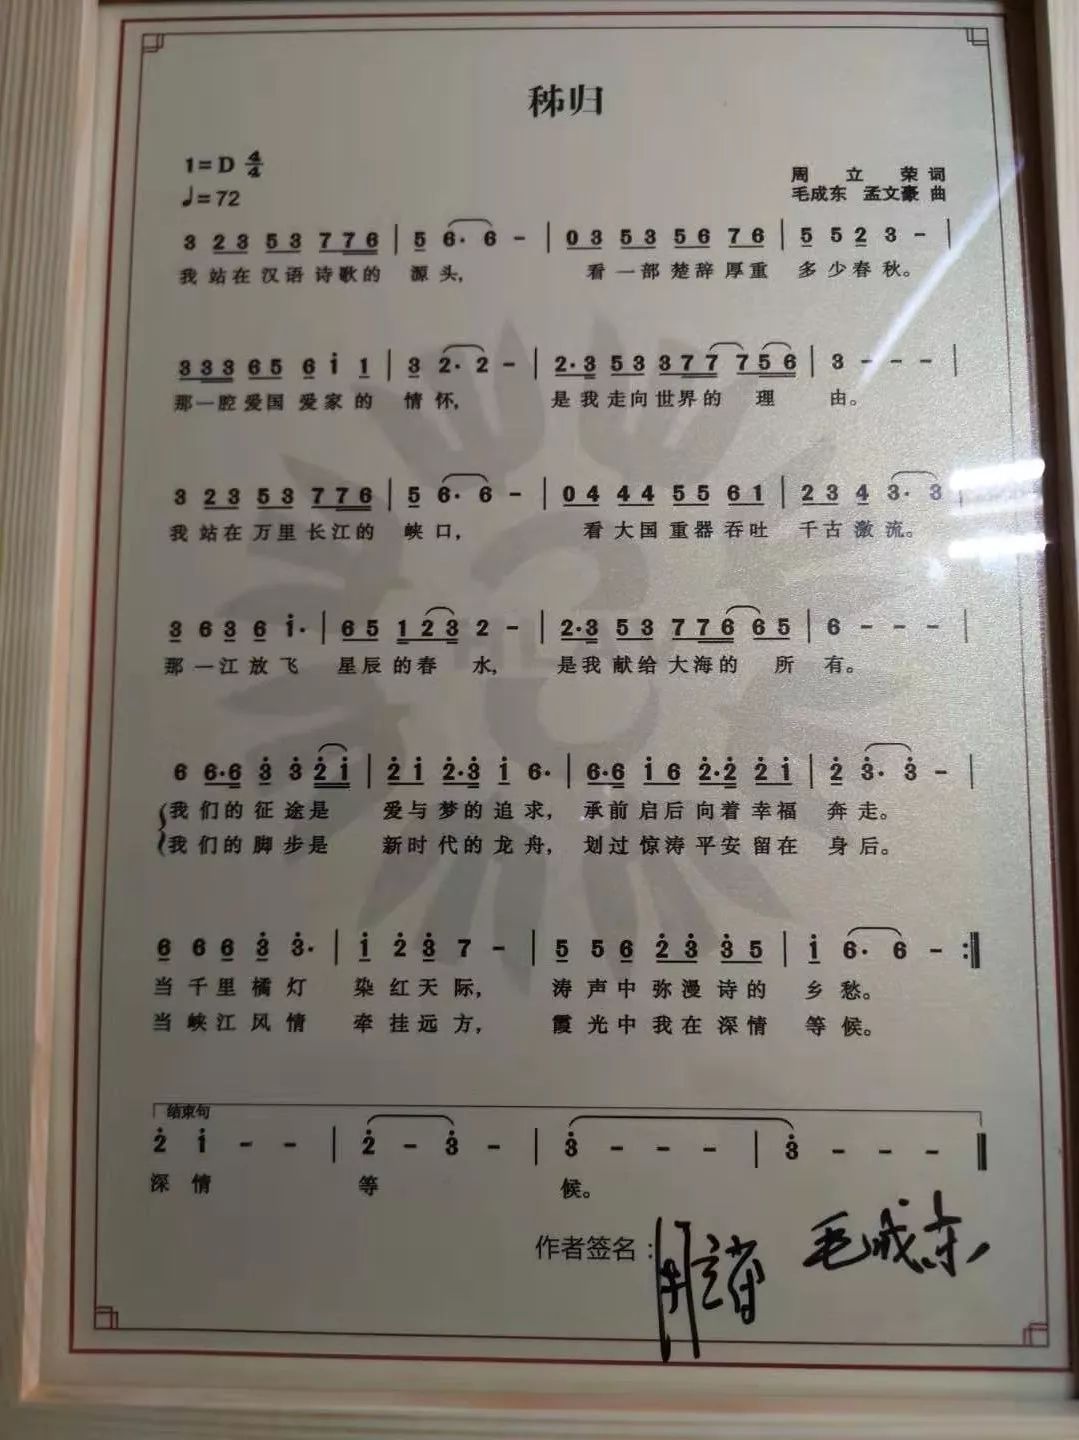 秭归
1=D 4/4
♩=72
周立荣 词
毛成东 孟文豪 曲
3 23 53 776 | 5 6· 6 - | 03 53 56 76 | 5 5 2 3 - |
我站在汉语诗歌的 源头, 看一部楚辞厚重 多少春秋。
333 65 6 i 1 | 3 2· 2 - | 2·3 53 377 756 | 3 - - - |
那一腔爱国爱家的 情怀, 是我走向世界的理 由。
3 23 53 776 | 5 6· 6 - | 04 44 55 61 | 23 4 3· 3 |
我站在万里长江的 峡口, 看大国重器吞吐 千古激流。
3 6 3 6 i· | 65 123 2 - | 2·3 53 776 665 | 6 - - - |
那一江放飞 星辰的春水, 是我献给大海的所 有。
6 6·6 3̇ 3̇ 2̇i | 2̇i 2̇·3̇ i 6· | 6·6 i6 2̇·2̇ 2̇i | 2̇ 3̇· 3̇ - |
我们的征途是 爱与梦的追求, 承前启后向着幸福 奔走。
我们的脚步是 新时代的龙舟, 划过惊涛平安留在 身后。
6 6 6 3̇ 3̇· | i 2̇ 3̇ 7 - | 5 5 6 2̇3̇ 3̇5 | i 6· 6 - :‖
当千里橘灯 染红天际, 涛声中弥漫诗的 乡愁。
当峡江风情 牵挂远方, 霞光中我在深情 等候。
结束句
2̇ i - - | 2̇ - 3̇ - | 3̇ - - - | 3̇ - - - ‖
深情 等 候。
作者签名: 周立荣 毛成东